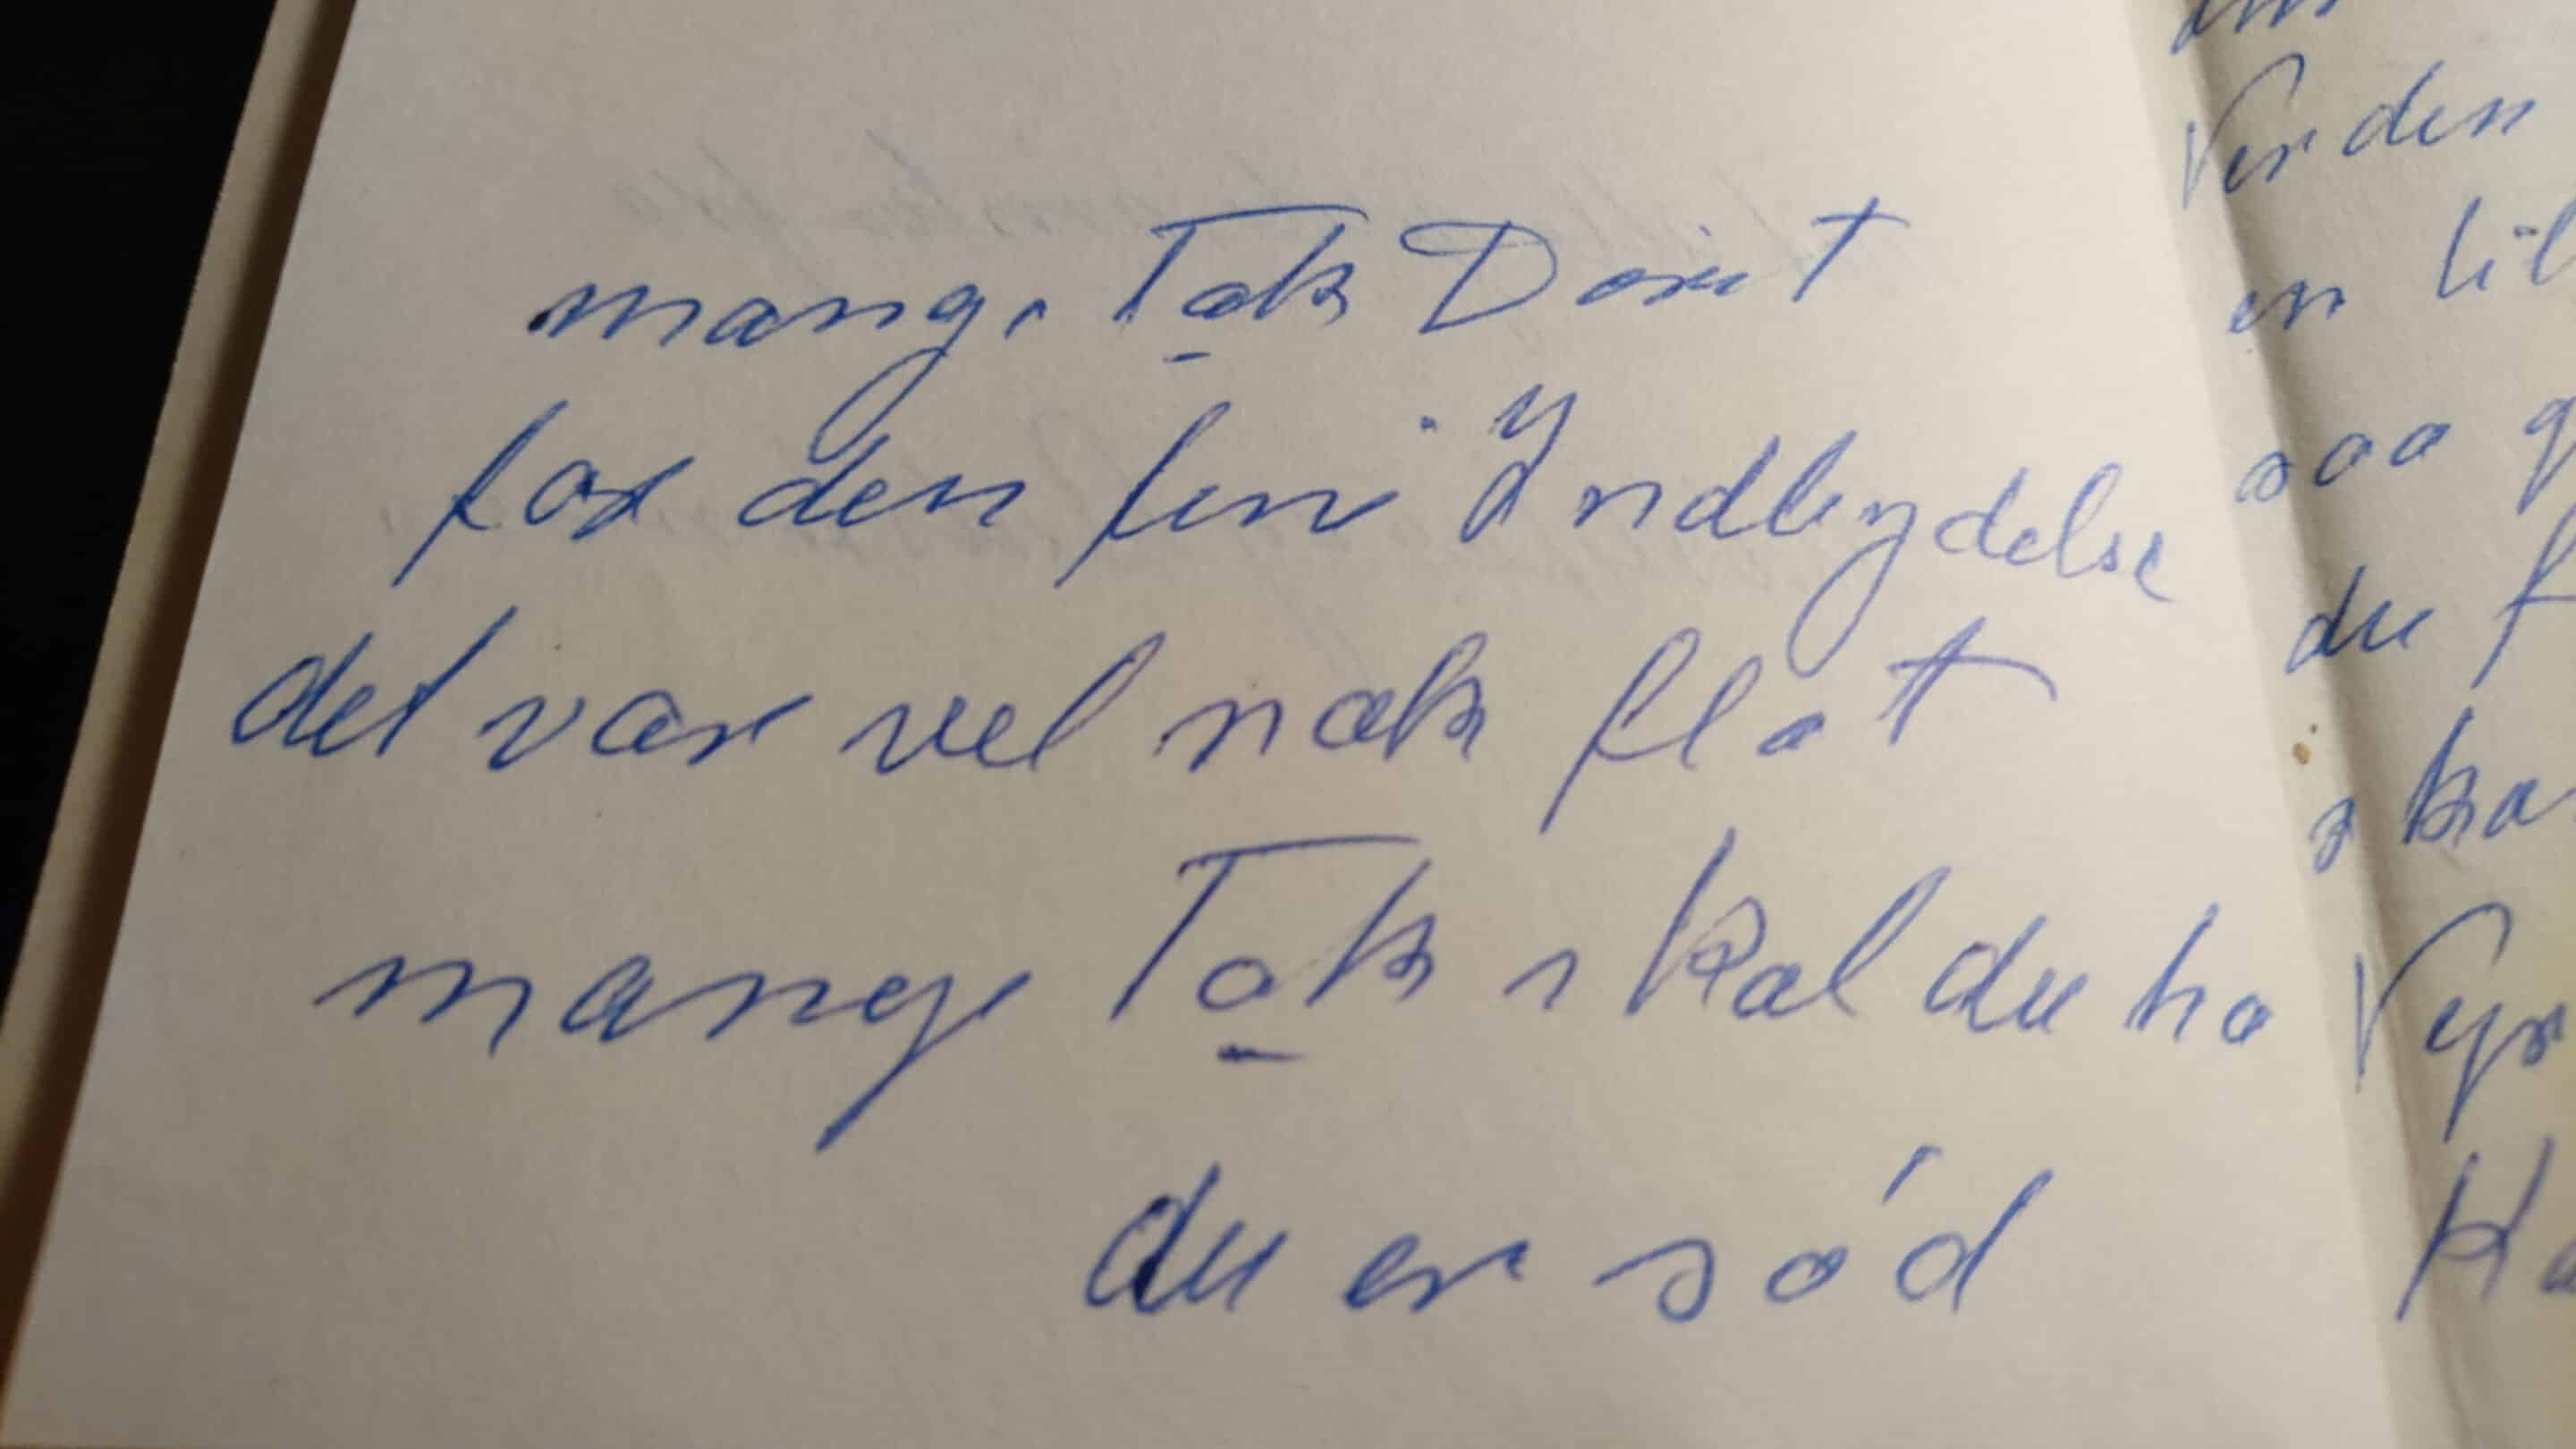 mange Tak Dorit
for den fine Indbydelse
det var vel nok flot
mange Tak skal du ha
du er sød
Verden
en
saa
du